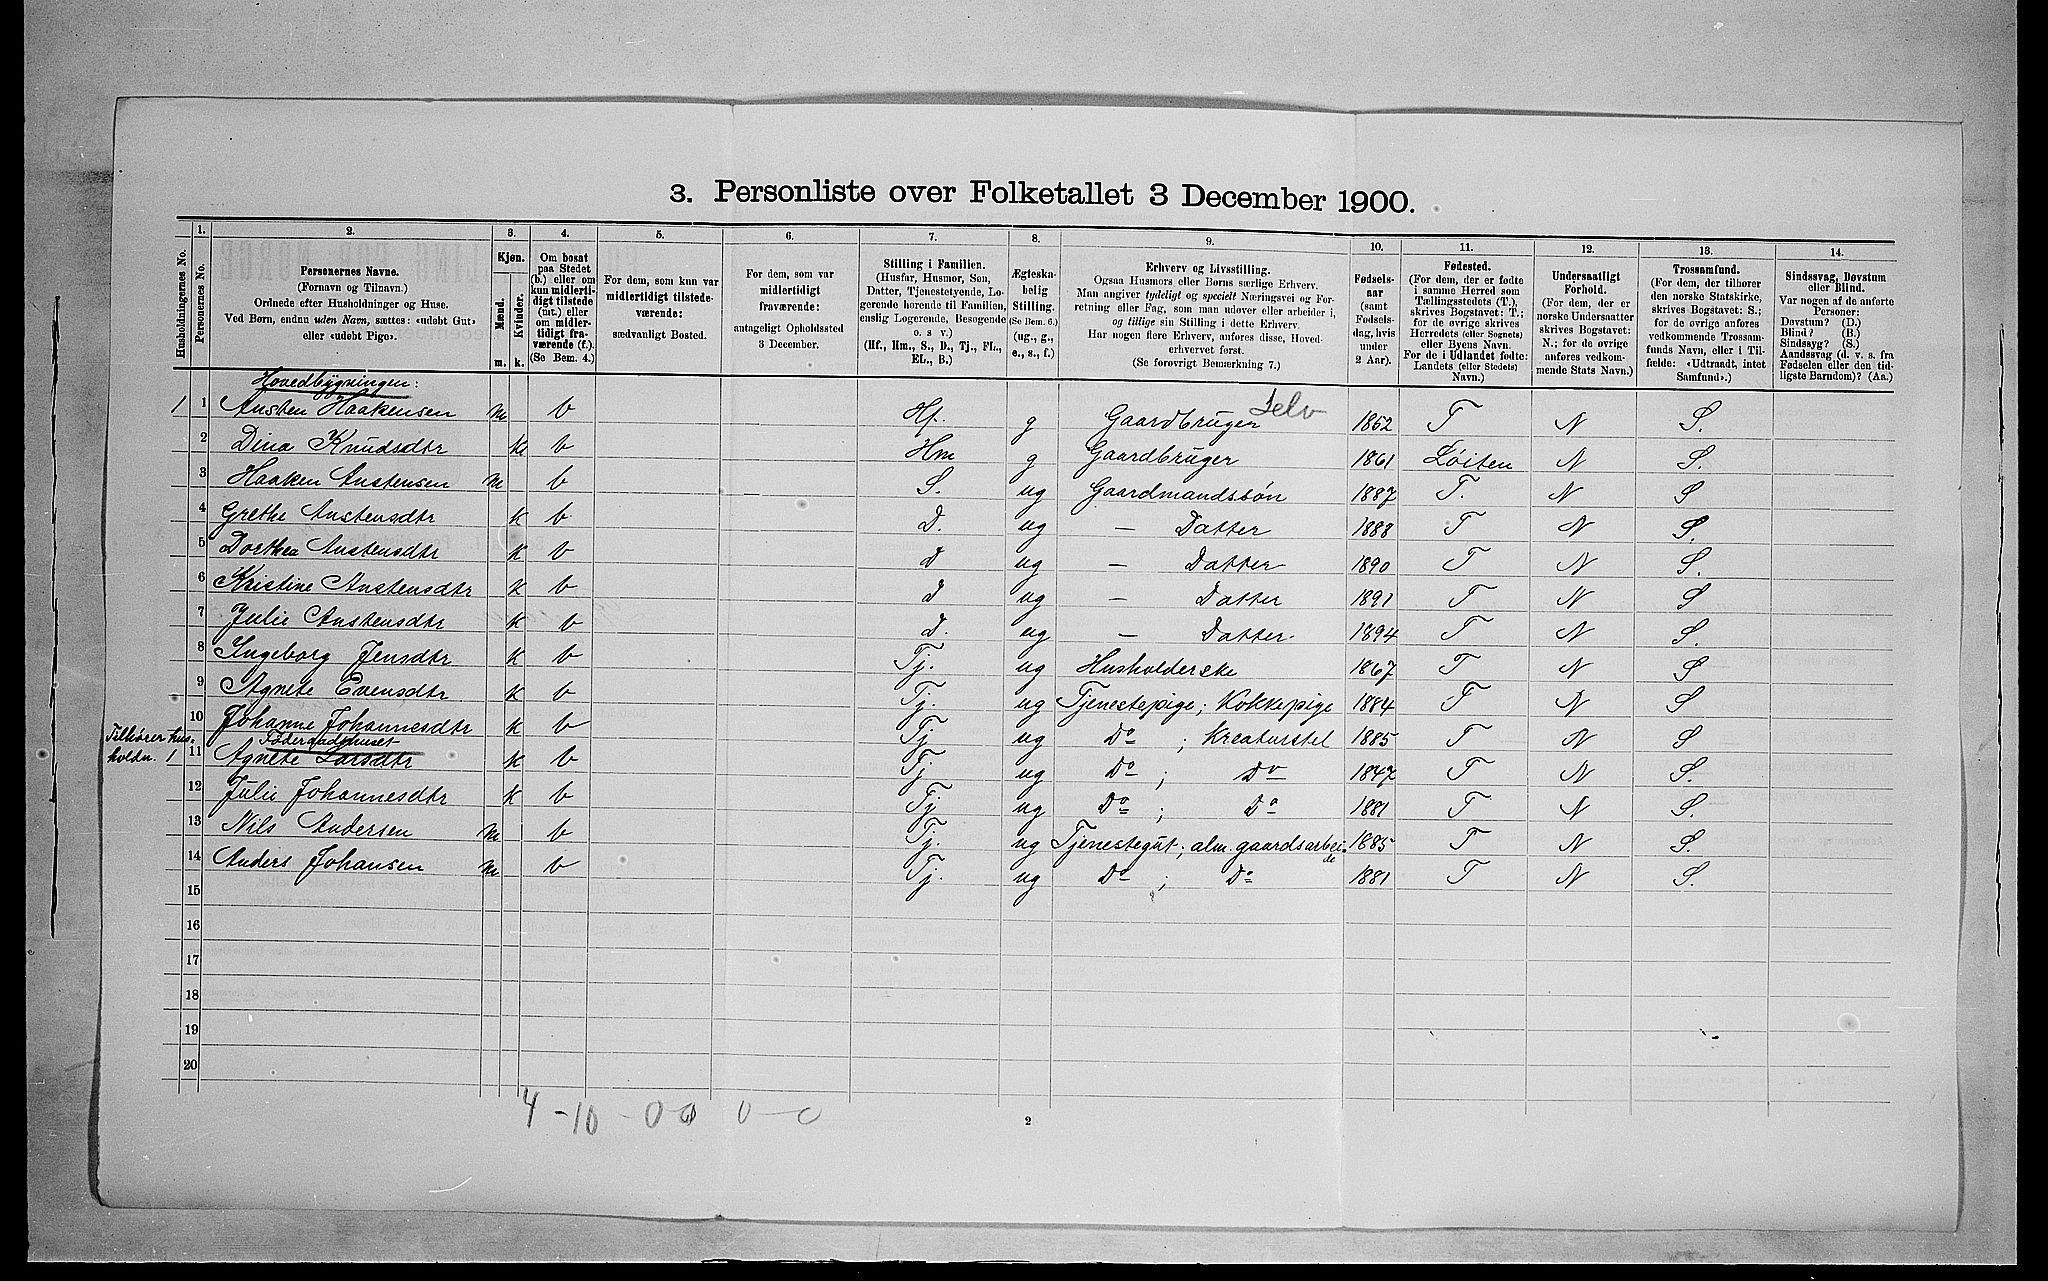 3. Personliste over Folketallet 3 December 1900.
Husholdningernes No.
1.
Personernes No.
2.
Personernes Navne.
(Fornavn og Tilnavn.)
Ordnede efter Husholdninger og Huse.
Ved Børn, endnu uden Navn, sættes: «udøbt Gut»
eller «udøbt Pige».
3.
Kjøn.
Mænd.
Kvinder.
m. k.
4.
Om bosat
paa Stedet
(b.) eller om
kun midlerti-
digt tilstede
(mt.) eller
om midler-
tidigt fra-
værende (f.).
(Se Bem. 4.)
5.
For dem, som kun var
midlertidigt tilstede-
værende:
sædvanligt Bosted.
6.
For dem, som var
midlertidigt
fraværende:
antageligt Opholdssted
3 December.
7.
Stilling i Familien.
(Husfar, Husmor, Søn,
Datter, Tjenestetyende, Lo-
gerende hørende til Familien,
enslig Logerende, Besøgende
o. s v.)
(Hf., Hm., S., D., Tj., FL.,
EL., B.)
8.
Ægteska-
belig
Stilling.
(Se Bem. 6.)
(ug., g.,
e., s., f.)
9.
Erhverv og Livsstilling.
Ogsaa Husmors eller Børns særlige Erhverv.
Man angiver tydeligt og specielt Næringsvei og For-
retning eller Fag, som man udøver eller arbeider i,
og tillige sin Stilling i dette Erhverv.
Har nogen flere Erhverv, anføres disse, Hoved-
erhvervet først.
(Se forøvrigt Bemærkning 7.)
10.
Fødsels-
aar
(samt
Fødsels-
dag, hvis
under
2 Aar).
11.
Fødested.
(For dem, der er fødte
i samme Herred som
Tællingsstedets (T.),
skrives Bogstavet: T.;
for de øvrige skrives
Herredets (eller Sognets)
eller Byens Navn.
For de i Udlandet fødte:
Landets (eller Stedets)
Navn.)
12.
Undersaatligt
Forhold.
(For dem, der er
norske Undersaatter
skrives Bogstavet:
N.; for de øvrige
anføres vedkom-
mende Stats Navn.)
13.
Trossamfund.
(For dem, der tilhører
den norske Statskirke,
skrives Bogstavet: S.;
for de øvrige anføres
vedkommende Trossam-
funds Navn, eller i Til-
fælde: «Udtraadt, intet
Samfund».)
14.
Sindssvag, Døvstum
eller Blind.
Var nogen af de anførte
Personer:
Døvstum? (D.)
Blind? (B.)
Sindssyg? (S.)
Aandssvag (d. v. s. fra
Fødselen eller den tid-
ligste Barndom)? (Aa.)
Hovedbygningen:
1 1 Ansten Haakensen m b Hf. g Gaardbruger Selv 1862 T N S.
2 Dina Knudsdtr k b Hm g Gaardbruger 1861 Løiten N S.
3 Haaken Anstensen m b S. ug Gaardmandssøn 1887 T. N S
4 Grethe Anstensdtr k b D. ug — Datter 1888 T N S.
5 Dorthea Anstensdtr k b D ug — Datter 1890 T N S.
6 Kristine Anstensdtr k b D ug — Datter 1891 T N S
7 Julie Anstensdtr k b D. ug — Datter. 1894 T N S.
8 Ingeborg Jensdtr k b Tj. ug Husholderske 1867 T N S
9 Agnete Evensdtr k b Tj. ug Tjenestepige; Kokkepige 1884 T N S
10 Johanne Johannesdtr k b Tj ug Do ; Kreaturstel 1885 T N S
Tilhører hus-
holdn. 1
Føderaadshuset
11 Agnete Larsdtr k b Tj ug Do ; Do 1847 T N S.
12 Julie Johannesdtr k b Tj ug Do ; Do 1881 T N S.
13 Nils Andersen m b Tj. ug Tjenestegut; alm. gaardsarbei- de 1885 T N S.
14 Anders Johansen m b Tj. ug Do ; Do 1881 T N S.
15
16
17
18
19
20
4 - 10 - 0 0 0 - 0
2